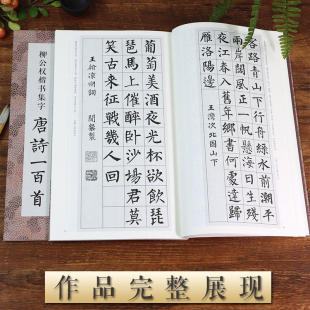 客路青山下行舟緑水前潮平
兩岸闊風正一帆懸海日生殘
夜江春入舊年鄉書何處達歸
雁洛陽邊
王灣次北固山下
葡萄美酒夜光杯欲飲琵
琶馬上催醉卧沙場君莫
笑古來征戰幾人回
王翰凉州詞
柳公权楷书集字
唐詩一百首
作品完整展现